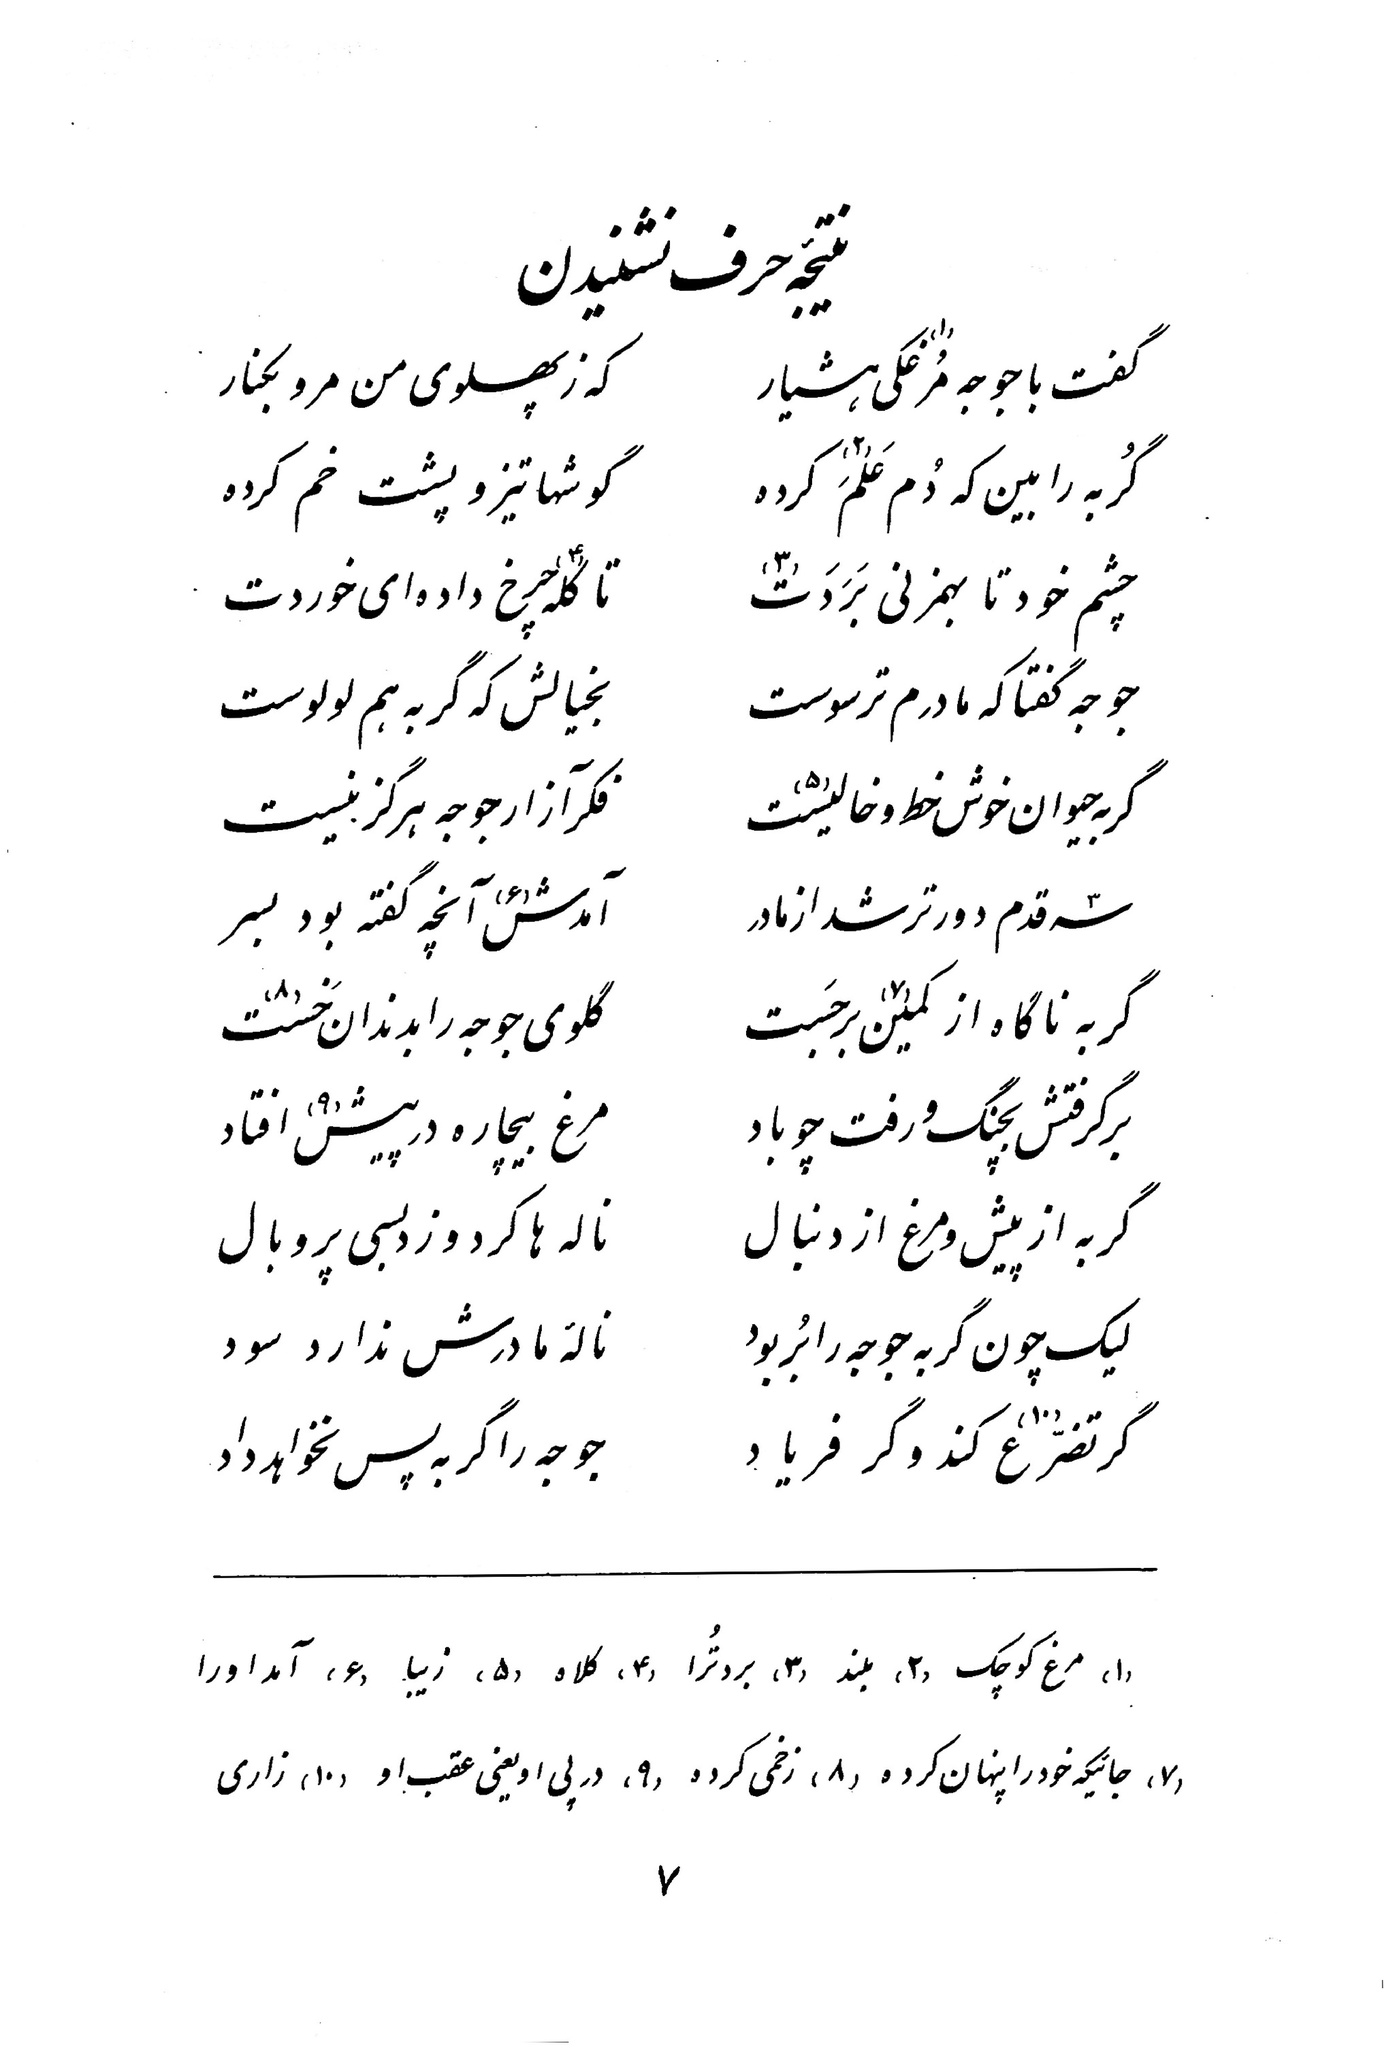 نتیجهٔ حرف نشنیدن
گفت با جوجه مُرغکی(۱) هشیار که ز پهلوی من مرو بکنار
گُربه را بین که دُم عَلَمَ(۲) کرده گوشها تیز و پشت خم کرده
چشم خود تا بهمزنی بَرَدَت(۳) تا کُلَه(۴) چرخ داده‌ای خوردت
جوجه گفتا که مادرم ترسوست بخیالش که گربه هم لولوست
گربه حیوان خوش خط و خالیست(۵) فکر آزار جوجه هرگز نیست
سه قدم دورتر شد از مادر آمدش(۶) آنچه گفته بود بسر
گربه ناگاه از کمین(۷) برجَست گلوی جوجه را بدندان خَست(۸)
برگرفتش بچنگ و رفت چو باد مرغ بیچاره در پیش(۹) افتاد
گربه از پیش و مرغ از دنبال ناله ها کرد و زد بسی پر و بال
لیک چون گربه جوجه را برُبود نالهٔ مادرش ندارد سود
گر تضرّع(۱۰) کند و گر فریاد جوجه را گربه پس نخواهد داد
(۱) مرغ کوچک (۲) بلند (۳) برد تُرا (۴) کلاه (۵) زیبا (۶) آمد او را
(۷) جائیکه خود را پنهان کرده (۸) زخمی کرده (۹) در پی او یعنی عقب او (۱۰) زاری
۷